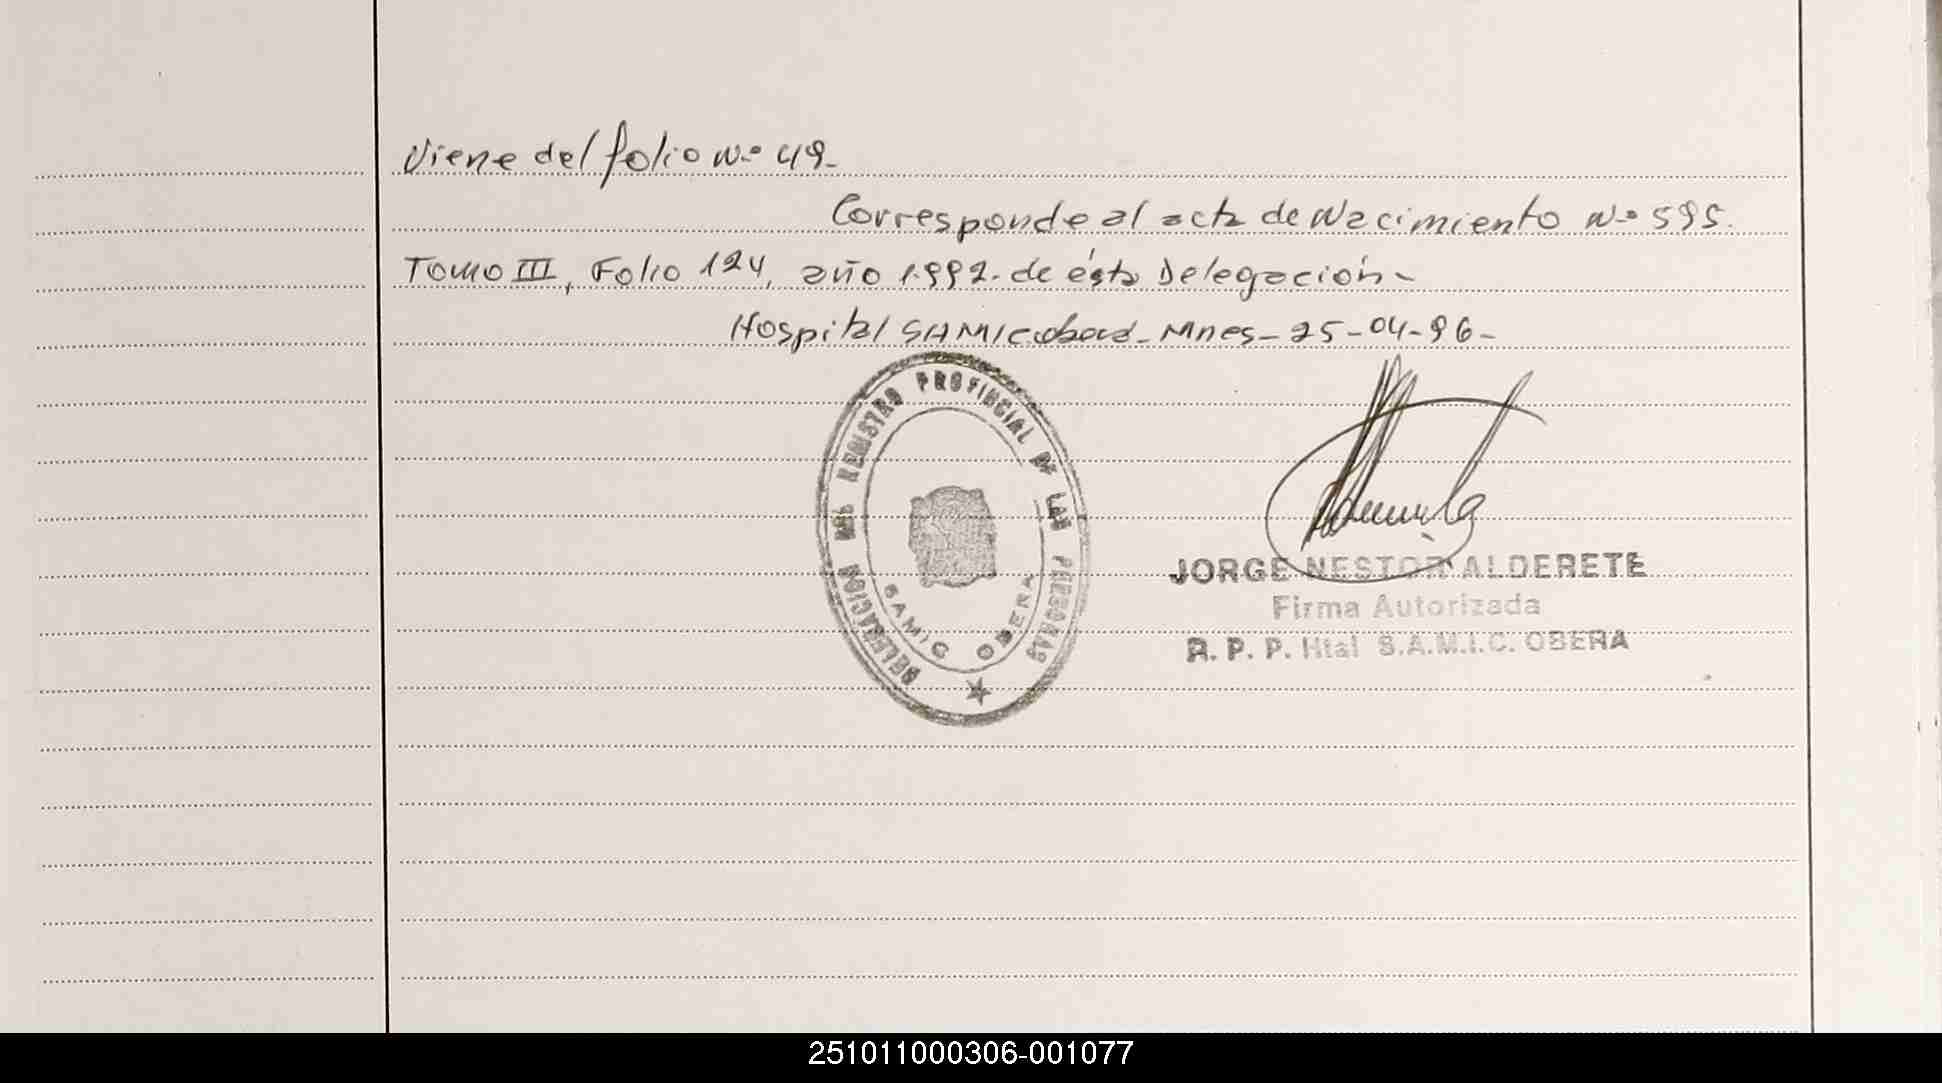 Viene del folio Nº 49.
Corresponde al acta de Nacimiento Nº 595.
Tomo III, Folio 124, año 1.992. de ésta Delegación-
Hospital SAMIC Oberá - Mnes - 25-04-96-
DELEGACION DEL REGISTRO PROVINCIAL DE LAS PERSONAS
SAMIC OBERA
JORGE NESTOR ALDERETE
Firma Autorizada
R. P. P. Htal S.A.M.I.C. OBERA
251011000306-001077